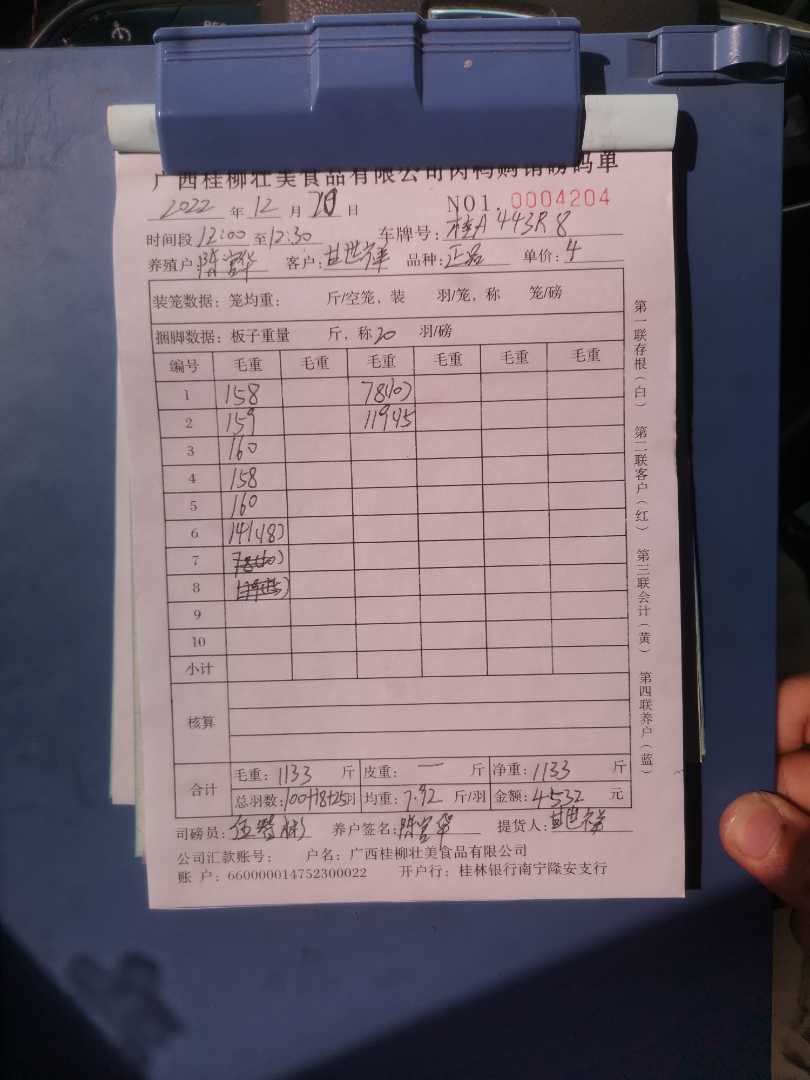 广西桂柳壮美食品有限公司肉鸭购销磅码单
2022 年 12 月 日 NO1. 0004204
时间段 12:00 至 12:30 车牌号: 桂A 443R8
养殖户: 陈富华 客户: 甘世祥 品种: 正品 单价: 4
装笼数据: 笼均重: 斤/空笼, 装 羽/笼, 称 笼/磅
捆脚数据: 板子重量 斤, 称 20 羽/磅
编号 毛重 毛重 毛重 毛重 毛重 毛重
1 158 78(10)
2 159 119(15
3 160
4 158
5 160
6 141(18)
7 78(10)
8
9
10
小计
核算
合计 毛重: 1133 斤 皮重: — 斤 净重: 1133 斤
总羽数: 100+18+25羽 均重: 7.92 斤/羽 金额: 4532 元
司磅员: 养户签名: 陈富华 提货人: 甘世祥
公司汇款账号: 户名: 广西桂柳壮美食品有限公司
账 户: 660000014752300022 开户行: 桂林银行南宁隆安支行
第一联存根(白) 第二联客户(红) 第三联会计(黄) 第四联养户(蓝)